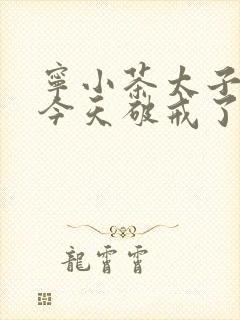 寧小茶太子
今天破戒了
龍霄霄